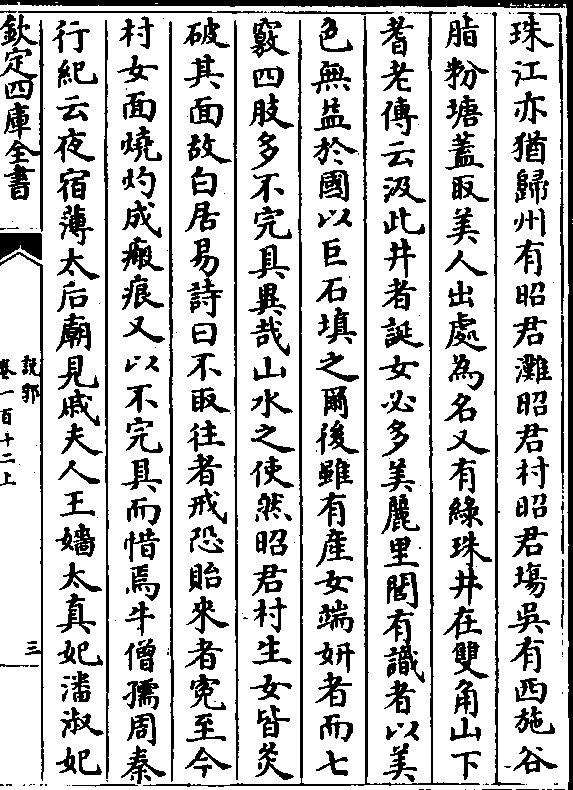 珠江亦猶歸州有昭君灘昭君村昭君塲吳有西施谷
脂粉塘蓋取美人出處為名又有綠珠井在雙角山下
耆老傳云汲此井者誕女必多美麗里閭有識者以美
色無益於國以巨石填之爾後雖有產女端妍者而七
竅四肢多不完具異哉山水之使然昭君村生女皆炙
破其面故白居易詩曰不取往者戒恐貽來者寃至今
村女面燒灼成瘢痕又以不完具而惜焉牛僧孺周秦
行紀云夜宿薄太后廟見戚夫人王嬙太真妃潘淑妃
欽定四庫全書
說郛
卷一百十二上
三